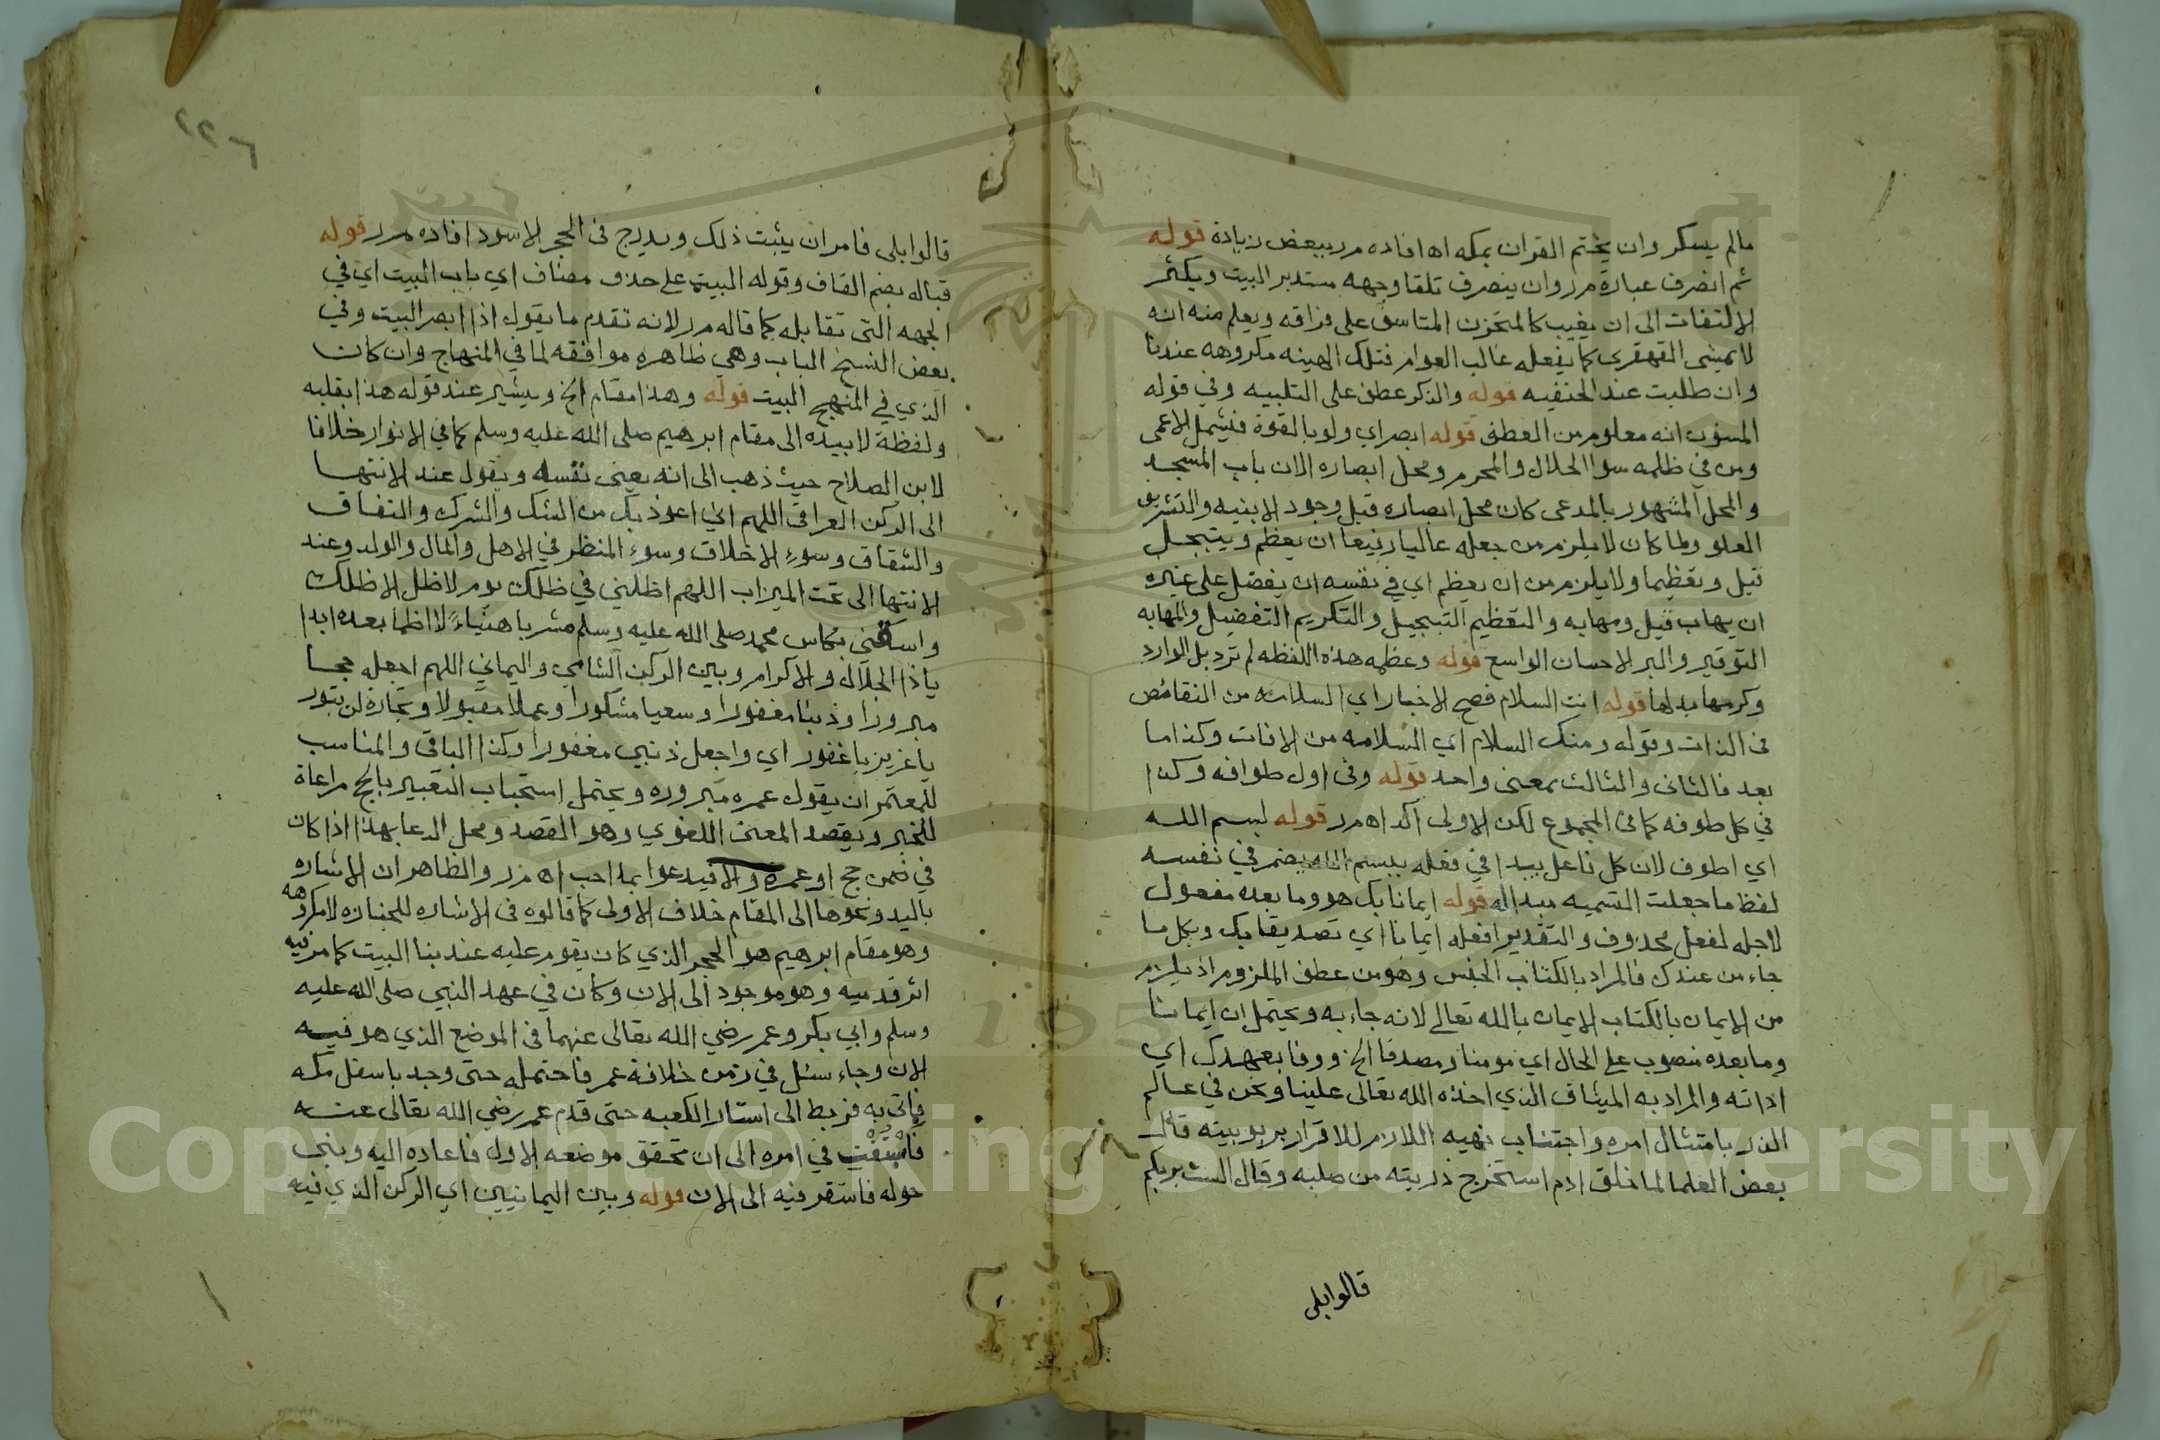 مالم يسكر وان يختم القران بمكه اه افاده م ر ببعض زيادة قوله
ثم انصرف عبارة م ر وان ينصرف تلقا وجهه مستدبر البيت ويكثر
الالتفات الى ان يغيب كالمتحزن المتاسف على فراقه ويعلم منه انه
لا يمشى القهقرى كما يفعله غالب العوام فتلك الهيئه مكروهه عندنا
وان طلبت عند الحنفيه قوله والذكر عطف على التلبيه وفي قوله
المسنون انه معلوم من العطف قوله ابصر اي ولو بالقوة فيشمل الاعمى
ومن في ظلمه سوا الحلال والمحرم ومحل ابصاره الان باب المسجد
والمحل المشهور بالمدعى كان محل ابصاره قبل وجود الابنيه والتشريف
العلو ولما كان لا يلزم من جعله عاليا رفيعا ان يعظم ويتبجل
قيل وتعظيما ولا يلزم من ان يعظم اي في نفسه ان يفضل على غيره
ان يهاب قيل ومهابه والتعظيم التبجيل والتكريم التفضيل والمهابه
التوقير والبر الاحسان الواسع قوله وعظمه هذه اللفظه لم ترد بل الوارد
وكرمها بدلها قوله انت السلام فصح الاخبار اي السلامه من النقائص
فى الذات وقوله ومنك السلام اي السلامه من الافات وكذا ما
بعد فالثانى والثالث بمعنى واحد قوله وفى اول طوافه وكذا
في كل طوفه كما فى المجموع لكن الاولى اكد اه م ر قوله بسم الله
اي اطوف لان كل فاعل يبدا في فعله ببسم الله يضمر في نفسه
لفظ ما جعلت التسميه مبدا له قوله ايمانا بك هو وما بعده مفعول
لاجله لفعل محذوف والتقدير افعله ايمانا اي تصديقا بك وبكل ما
جاء من عندك فالمراد بالكتاب الجنس وهو من عطف الملزوم اذ يلزم
من الايمان بالكتاب الايمان بالله تعالى لانه جاء به ويحتمل ان ايمانا
وما بعده منصوب على الحال اي مومنا ومصدقا الخ ووفا بعهدك اي
اداته والمراد به الميثاق الذي اخذه الله تعالى علينا ونحن في عالم
الذر بامتثال امره واجتناب نهيه اللازم للاقرار بربوبيته قال
بعض العلما لما خلق ادم استخرج ذريته من صلبه وقال الست بربكم
قالوا بلى
٢٢٦
قالوا بلى فامر ان يثبت ذلك ويدرج فى الحجر الاسود افاده م ر قوله
قباله بضم القاف وقوله البيت على حذف مضاف اي باب البيت اي في
الجهه التى تقابله كما قاله م ر لانه تقدم ما يقول اذا ابصر البيت وفي
بعض النسخ الباب وهي ظاهره موافقه لما في المنهاج وان كان
الذي في المنهج البيت قوله وهذا مقام الخ ويشير عند قوله هذا بقلبه
ولفظة لا بيده الى مقام ابرهيم صلى الله عليه وسلم كما في الانوار خلافا
لابن الصلاح حيث ذهب الى انه يعنى نفسه ويقول عند الانتها
الى الركن العراقى اللهم اني اعوذ بك من الشك والشرك والنفاق
والشقاق وسوء الاخلاق وسوء المنظر في الاهل والمال والولد وعند
الانتها الى تحت الميزاب اللهم اظلني في ظلك يوم لا ظل الا ظلك
واسقني بكاس محمد صلى الله عليه وسلم مشربا هنياء لا اظما بعده ابدا
ياذا الجلال والاكرام وبين الركن الشامي واليماني اللهم اجعله حجا
مبرورا وذنبا مغفورا وسعيا مشكورا وعملا مقبولا وتجارة لن تبور
ياعزيز ياغفور اي واجعل ذنبي مغفورا وكذا الباقى والمناسب
للمعتمر ان يقول عمره مبروره ويحتمل استحباب التعبير بالحج مراعاة
للخبر ويقصد المعنى اللغوي وهو القصد ومحل الدعا بهذا اذا كان
في ضمن حج او عمره والا فيدعوا بما احب اه م ر والظاهر ان الاشاره
باليد ونحوها الى المقام خلاف الاولى كما قالوه فى الاشاره للجنازه لامكروهه
وهو مقام ابرهيم هو الحجر الذي كان يقوم عليه عند بنا البيت كما مر فيه
اثر قدميه وهو موجود الى الان وكان في عهد النبي صلى الله عليه
وسلم وابي بكر وعمر رضي الله تعالى عنهما فى الموضع الذي هو فيه
الان وجاء سيل في زمن خلافة عمر فاحتمله حتى وجد باسفل مكه
فاتى به فربط الى استار الكعبه حتى قدم عمر رضي الله تعالى عنه
في امره الى ان تحقق موضعه الاول فاعاده اليه وبنى
حوله فاستقر فيه الى الان قوله وبين اليمانيين اي الركن الذي فيه
Copyright © King Saud University